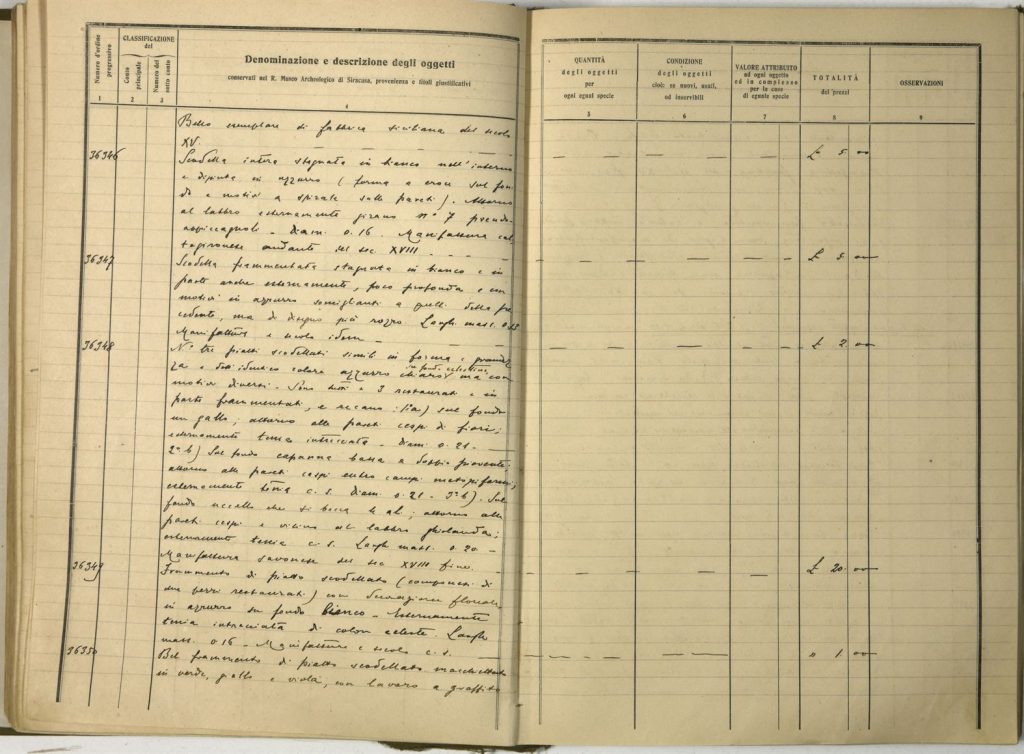 Numero d'ordine progressivo
CLASSIFICAZIONE del
Conto principale
Numero del sotto conto
Denominazione e descrizione degli oggetti
conservati nel R. Museo Archeologico di Siracusa, provenienza e titoli giustificativi
QUANTITÀ degli oggetti per ogni egual specie
CONDIZIONE degli oggetti cioè: se nuovi, usati, od inservibili
VALORE ATTRIBUITO ad ogni oggetto ed in complesso per le cose di eguale specie
TOTALITÀ dei prezzi
OSSERVAZIONI
1 2 3 4 5 6 7 8 9
Bello esemplare di fabbrica siciliana del secolo
XV. £ 5 00
36346 Scodella intera stagnata in bianco nell'interno
e dipinta in azzurro (forma a croce sul fon-
do e motivi a spirale sulle pareti). Attorno
al labbro esternamente girano n° 7 pseudo-
appiccagnoli - diam. 0.16. Manifattura cal-
tagironese andante del sec. XVIII £ 5 00
36347 Scodella frammentata stagnata in bianco e in
parte anche esternamente, poco profonda e con
motivi in azzurro somiglianti a quelli della pre-
cedente, ma di disegno più rozzo. Largh. mass. 0.13
Manifattura e secolo idem £ 2 00
36348 N° tre piatti scodellati simili in forma e grandez-
za e dall'identico colore azzurro chiaro su fondo celestino, ma con
motivi diversi. Sono tutti e 3 restaurati e in
parte frammentati, e recano: 1°a) sul fondo
un gallo; attorno alle pareti cespi di fiori;
esternamente tenia intrecciata - diam. 0.21 -
2° b) Sul fondo capanna bassa a doppio piovente;
attorno alle pareti cespi entro campi
esternamente tenia c. s. diam. 0.21 - 3° b). Sul
fondo uccello che si becca le ali; attorno alle
pareti cespi e vicino al labbro ghirlanda;
esternamente tenia c. s. Largh. mass. 0.20 -
Manifattura savonese del sec. XVIII fine. £ 20 00
36349 Frammento di piatto scodellato (composto di
due pezzi restaurati) con decorazione floreale
in azzurro su fondo bianco - Esternamente
tenia intrecciata di colore celeste. Largh.
mass. 0.16 - Manifattura e secolo c. s. " 1 00
36350 Bel frammento di piatto scodellato macchiettato
in verde, giallo e viola, con lavoro a graffito